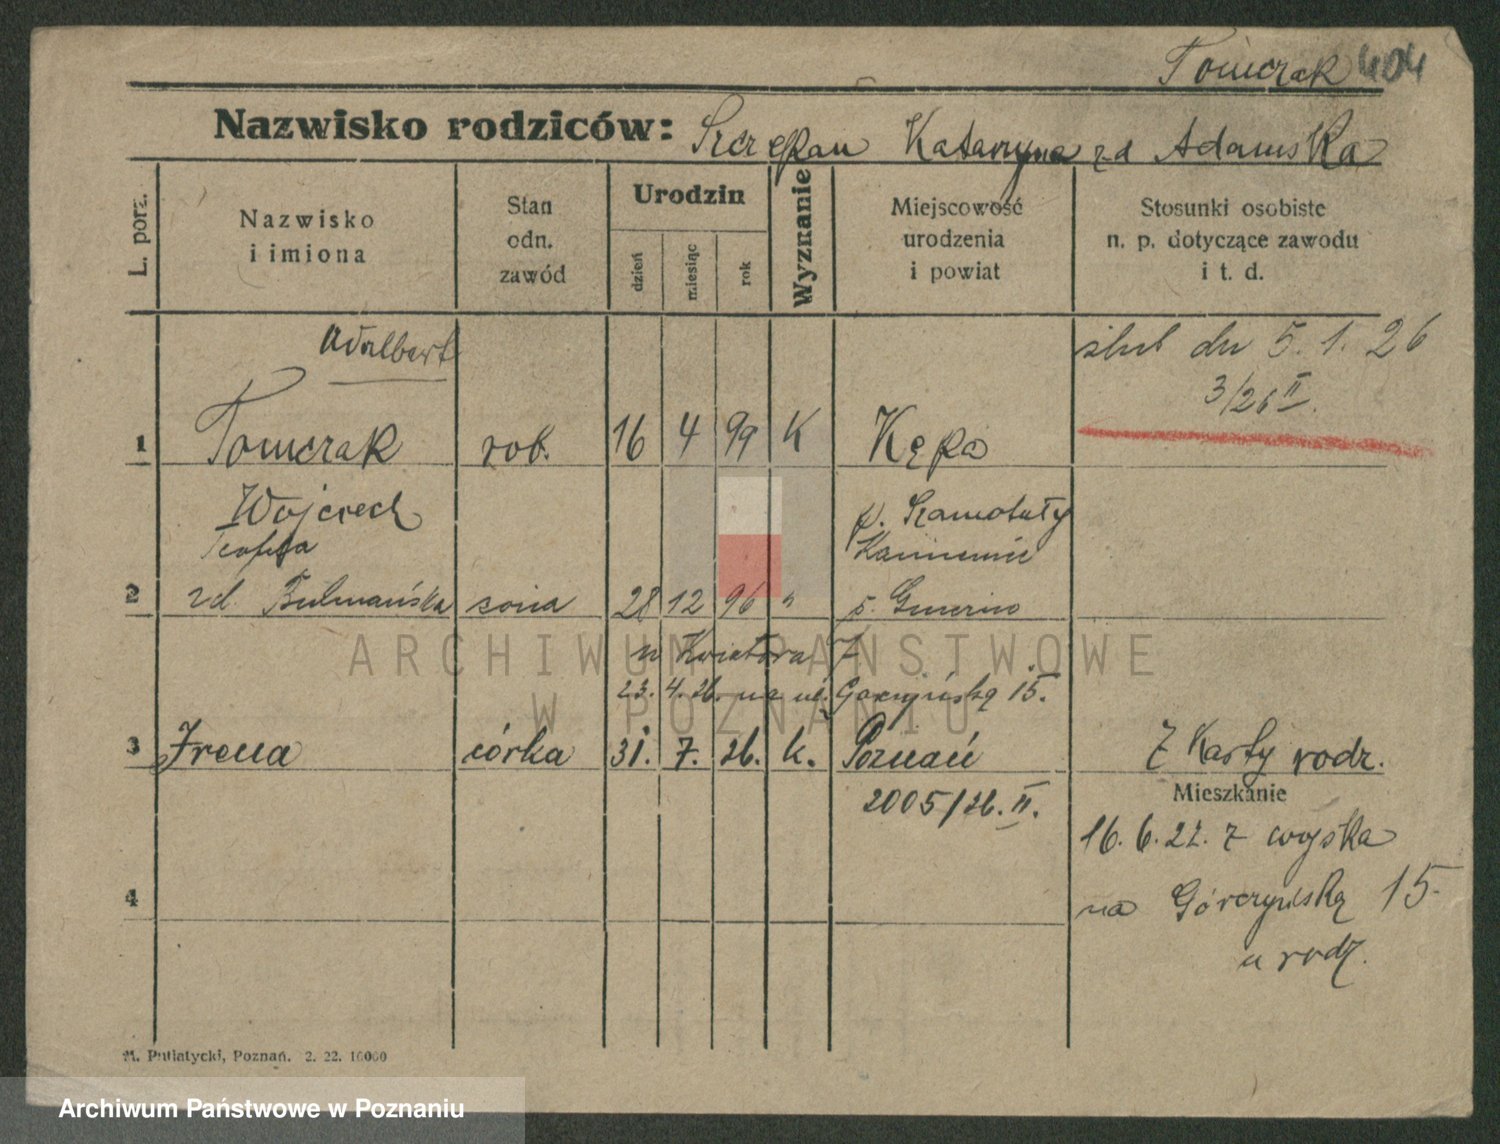 Tomczak 404
Nazwisko rodziców: Szczepan Katarzyna zd Adamska
L. porz.
Nazwisko i imiona
Stan odn. zawód
Urodzin
dzień
miesiąc
rok
Wyznanie
Miejscowość urodzenia i powiat
Stosunki osobiste n. p. dotyczące zawodu i t. d.
Adalbert
ślub dn 5. 1. 26
3/26 II.
1 Tomczak rob. 16 4 99 K Kępa
Wojciech p. Szamotuły
Teofila
2 zd. żona 28 12 96 "
23. 4. 26. na ul. Gorczyńską 15.
3 Irena córka 31. 7. 26. k. Poznań Z Karty rodz.
2005/26. II.
Mieszkanie
16. 6. 22. z wojska
4
na Górczyńską 15.
u rodz.
M. Putiatycki, Poznań. 2. 22. 10000
ARCHIWUM PAŃSTWOWE
W POZNANIU
Archiwum Państwowe w Poznaniu